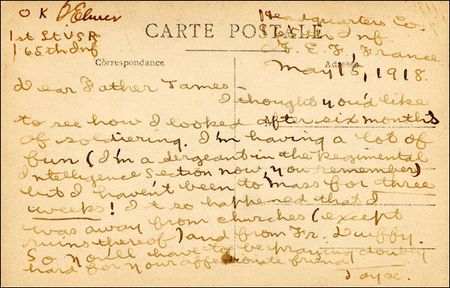 O K
1st Lt USR
165th Inf
Headquarters Co.
165th Inf
A. E. F., France
CARTE POSTALE
Correspondance
Adresse
May 15, 1918.
Dear Father James—
I thought you'd like
to see how I looked after six months
of soldiering. I'm having a lot of
fun (I'm a sergeant in the Regimental
Intelligence Section now, you remember)
but I haven't been to Mass for three
weeks! It so happened that I
was away from churches (except
ruins thereof) and from Fr. Duffy.
So you'll have to be praying doubly
hard for your affectionate friend
Joyce.